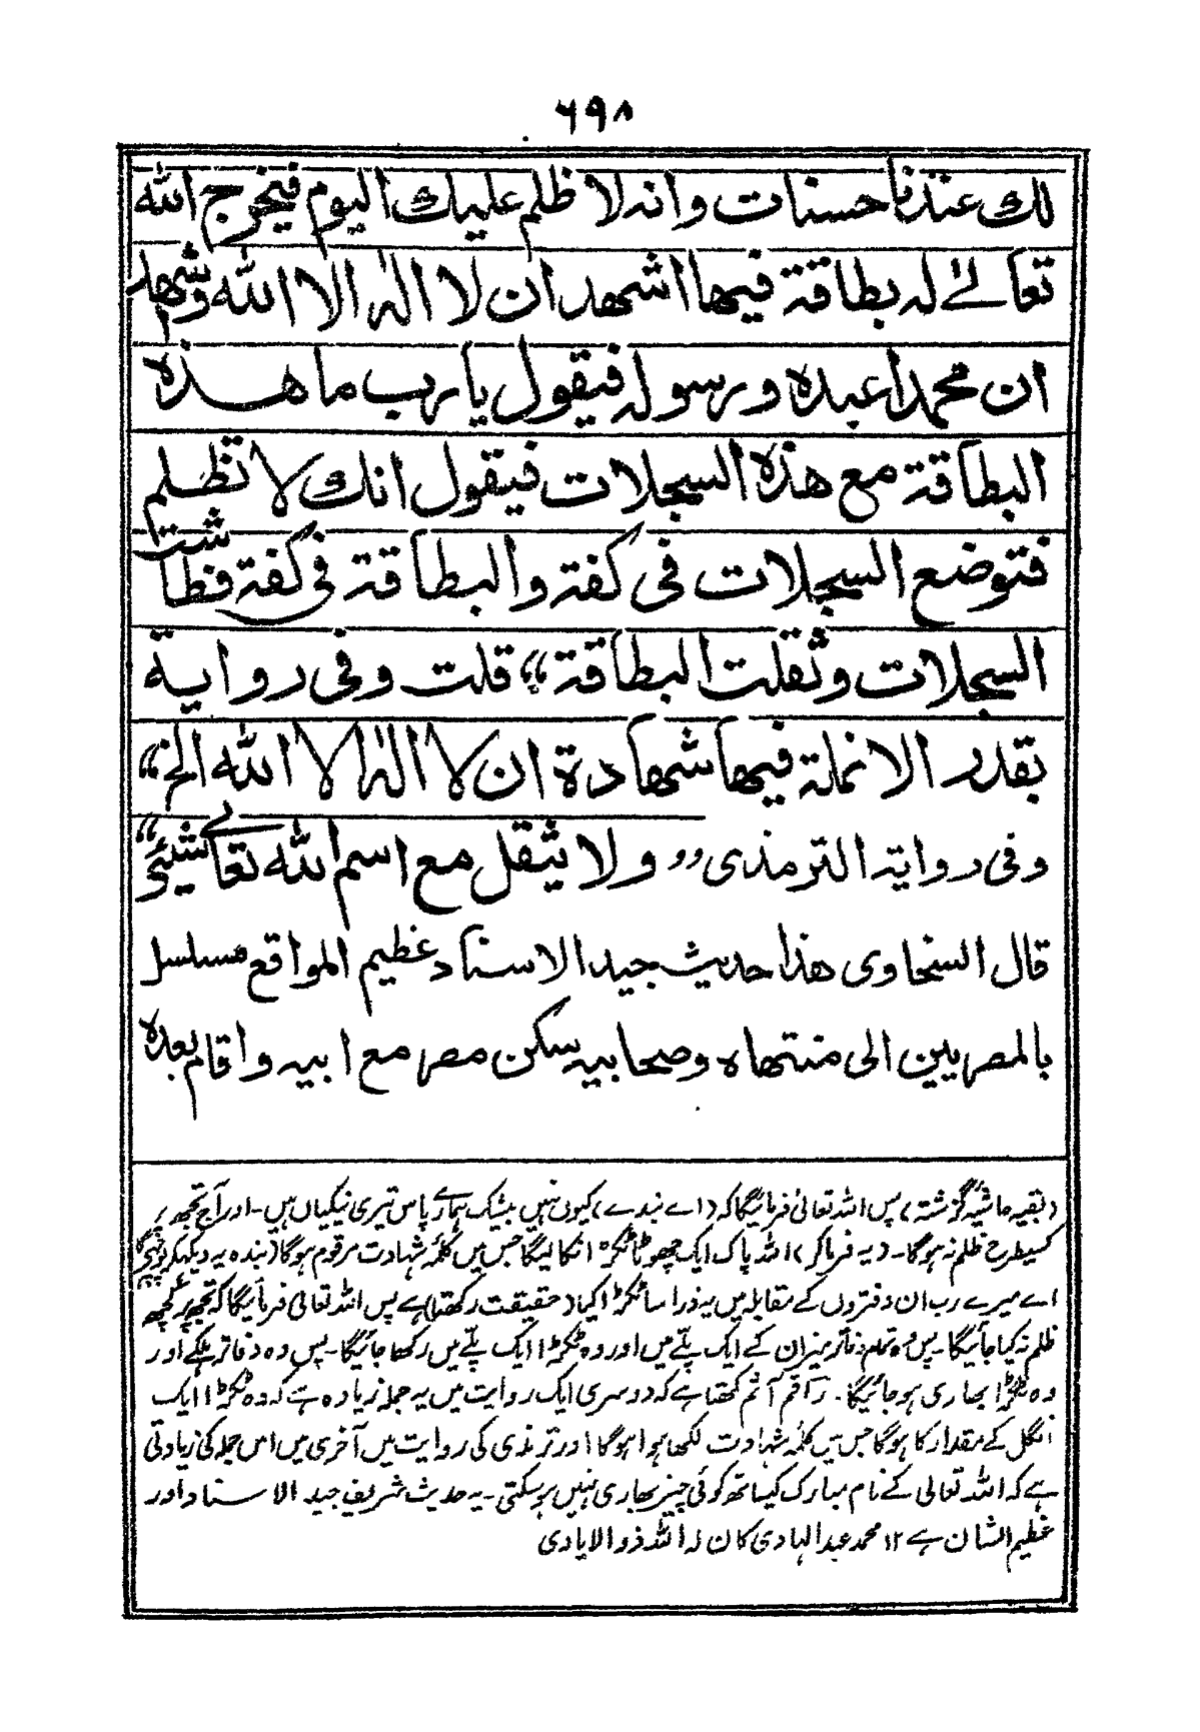 ۶۹۸
لك عندنا حسنات وانه لا ظلم عليك اليوم فيخرج الله
تعالےٰ له بطاقة فيها اشهد ان لا اله الا الله واشهد
ان محمداً عبده ورسوله فيقول يارب ما هذه
البطاقة مع هذه السجلات فيقول انك لا تظلم
فتوضع السجلات فى كفة والبطاقة فى كفة فطاشت
السجلات وثقلت البطاقة“ قلت وفى رواية
بقدر الانملة فيها شهادة ان لا اله الا الله الخ“
وفى رواية الترمذى ,, ولا يثقل مع اسم الله تعالےٰ شيئى“
قال السخاوى هذا حديث جيد الاسناد عظيم المواقع مسلسل
بالمصريين الى منتهاه وصحابيه سكن مصر مع ابيه واقام بعده
(بقیہ حاشیہ گزشتہ) پس اللہ تعالیٰ فرمائیگا کہ (اے بندے) کیوں نہیں بیشک ہمارے پاس تیری نیکیاں ہیں۔ اور آج تجھ پر
کسیطرح ظلم نہ ہوگا۔ (یہ فرما کر) اللہ پاک ایک چھوٹا ٹکڑہ نکالیگا جس میں کلمۂ شہادت مرقوم ہوگا (بندہ یہ دیکھکر) پوچھیگا
اے میرے رب ان دفتروں کے مقابلہ میں یہ ذرا سا ٹکڑا کیا (حقیقت رکھتا) ہے پس اللہ تعالیٰ فرمائیگا کہ تجھ پر کچھ
ظلم نہ کیا جائیگا۔ پس وہ تمام دفاتر میزان کے ایک پلّے میں اور وہ ٹکڑا ایک پلّے میں رکھا جائیگا۔ پس وہ دفاتر ہلکے اور
وہ ٹکڑا بھاری ہو جائیگا۔ راقم آثم کہتا ہے کہ دوسری ایک روایت میں یہ جملہ زیادہ ہے کہ وہ ٹکڑا ایک
انگل کے مقدار کا ہوگا جس میں کلمۂ شہادت لکھا ہوا ہوگا اور ترمذی کی روایت میں آخری میں اس جملہ کی زیادتی
ہے کہ اللہ تعالی کے نام مبارک کیساتھ کوئی چیز بھاری نہیں ہو سکتی۔ یہ حدیث شریف جید الاسناد اور
عظیم الشان ہے ۱۲ محمد عبد الہادی کان لہ اللہ ذو الایادی